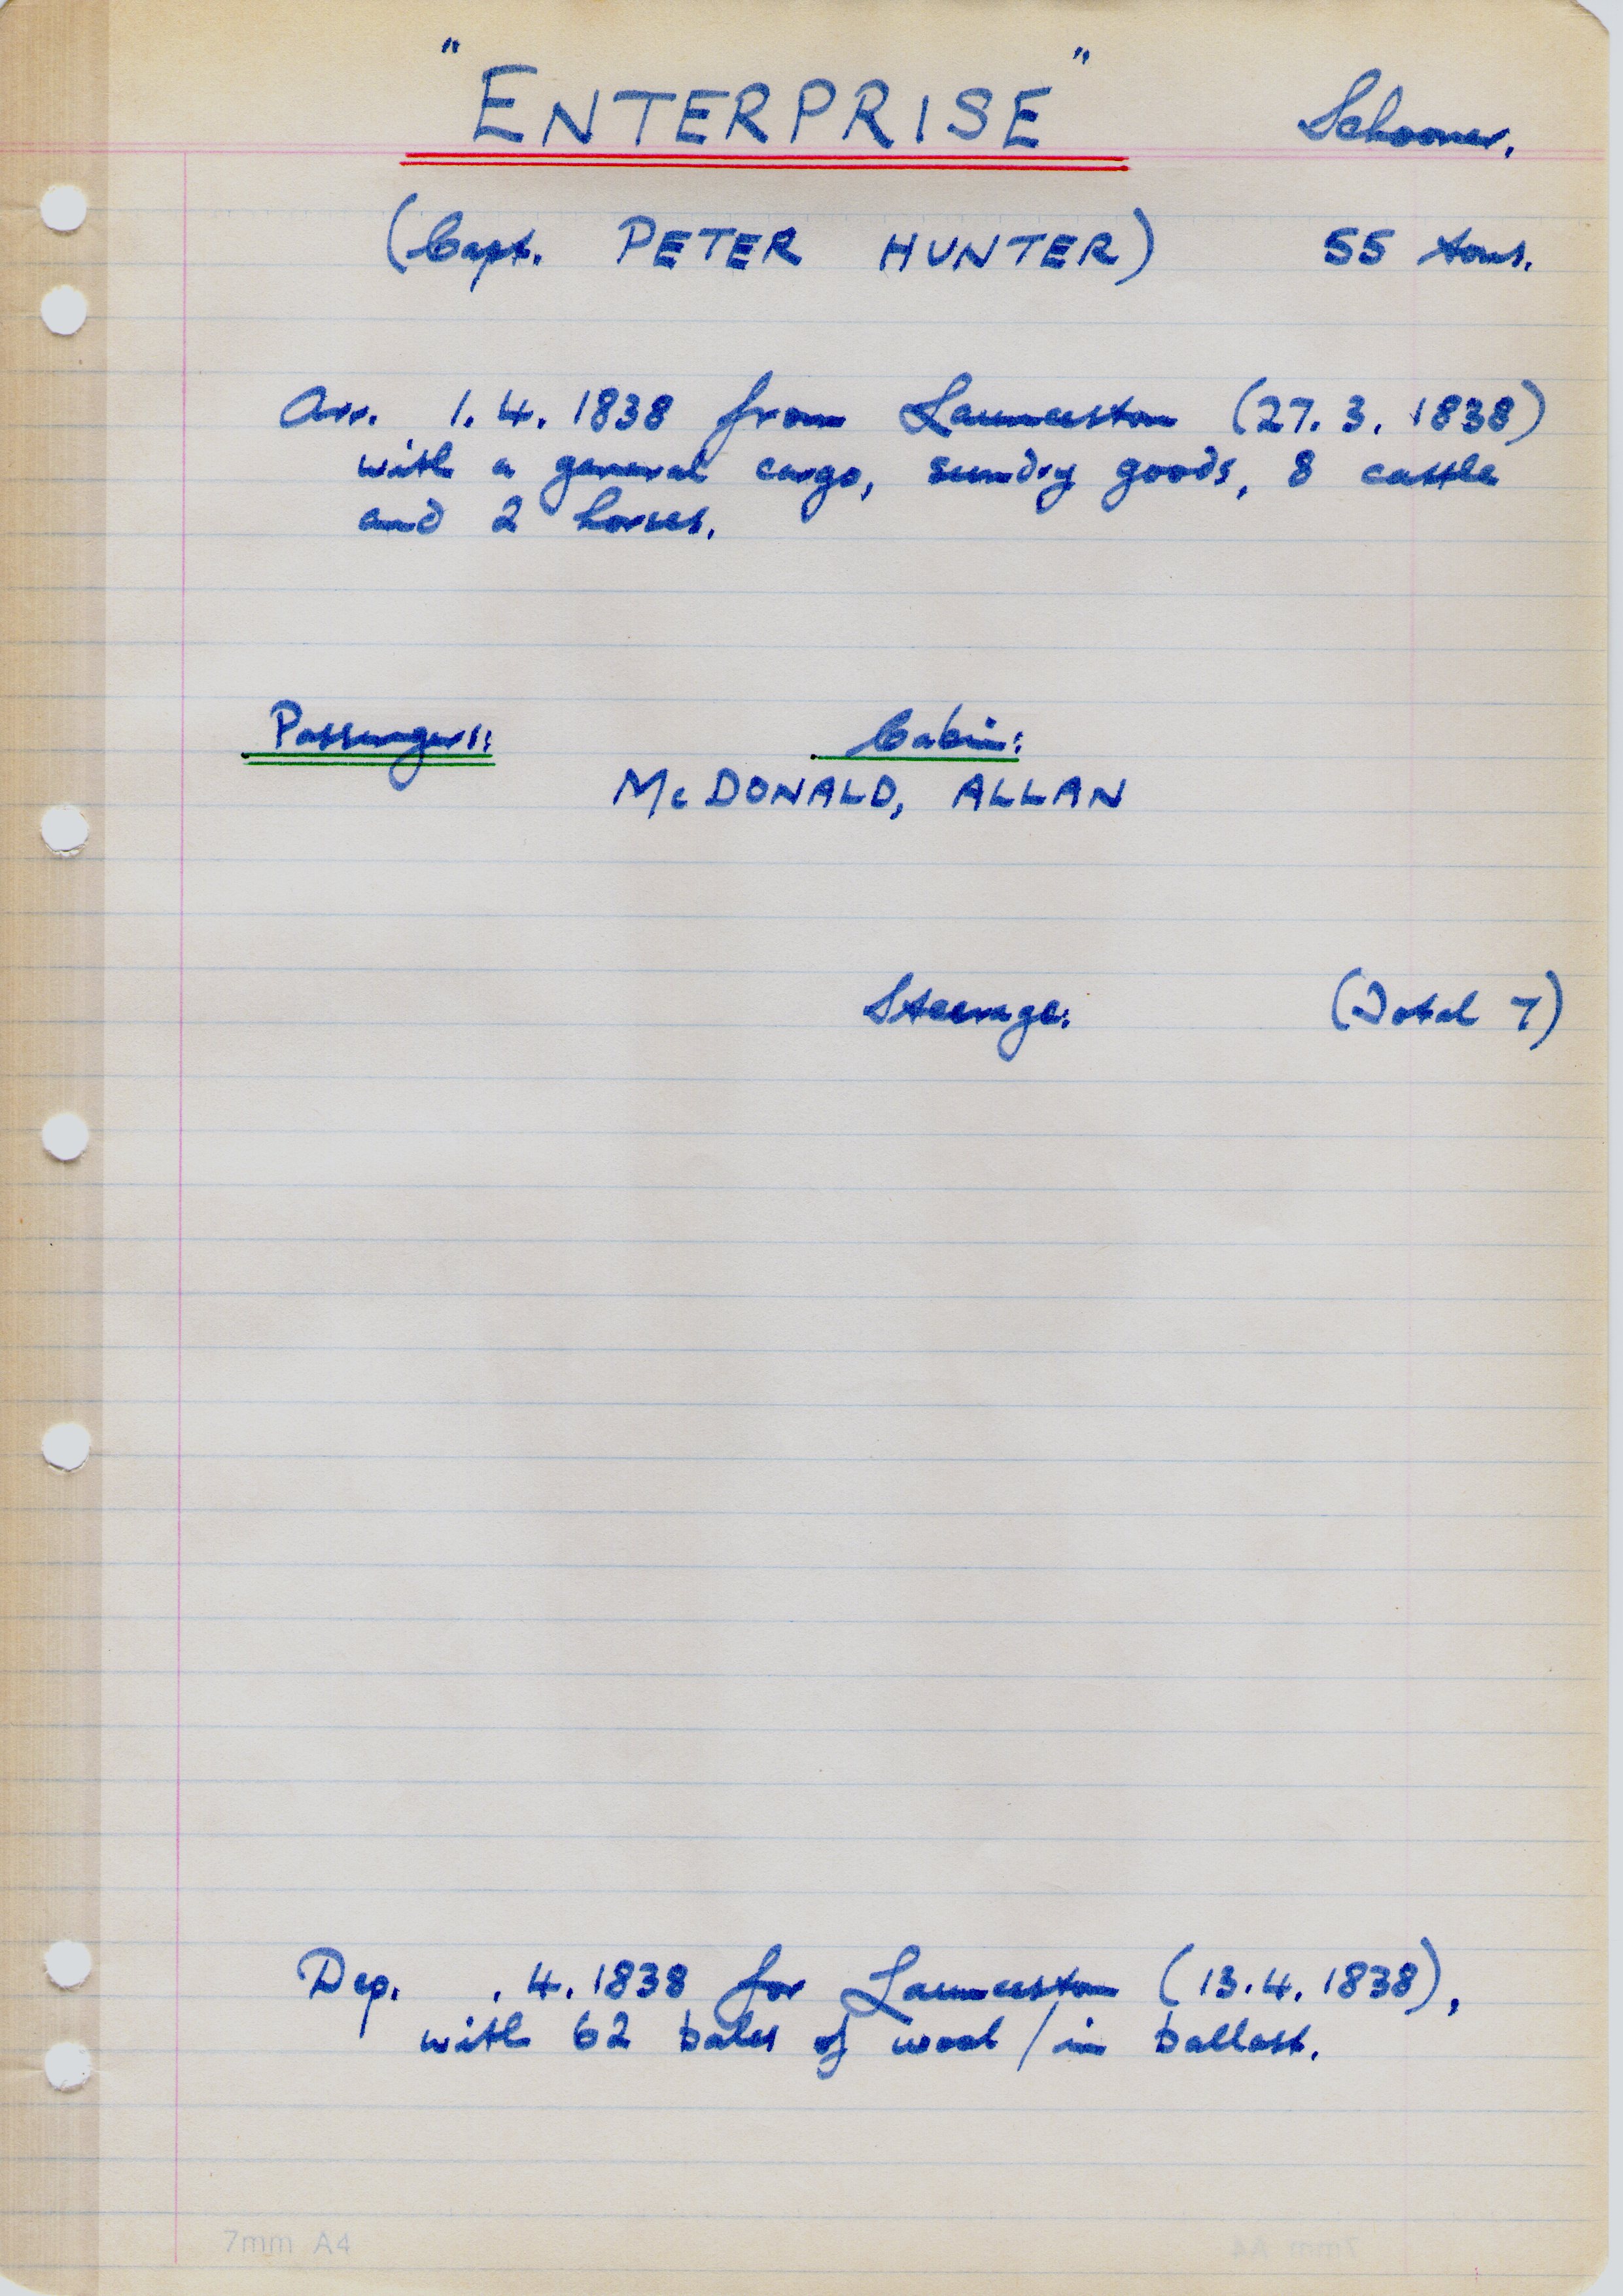 "ENTERPRISE" Schooner.
(Capt. PETER HUNTER) 55 tons.
Arr. 1.4.1838 from Launceston (27.3.1838)
with a general cargo, sundry goods, 8 cattle
and 2 horses.
Passengers: Cabin:
McDONALD, ALLAN
Steerage: (Total 7)
Dep. .4.1838 for Launceston (13.4.1838),
with 62 bales of wool / in ballast.
7mm A4